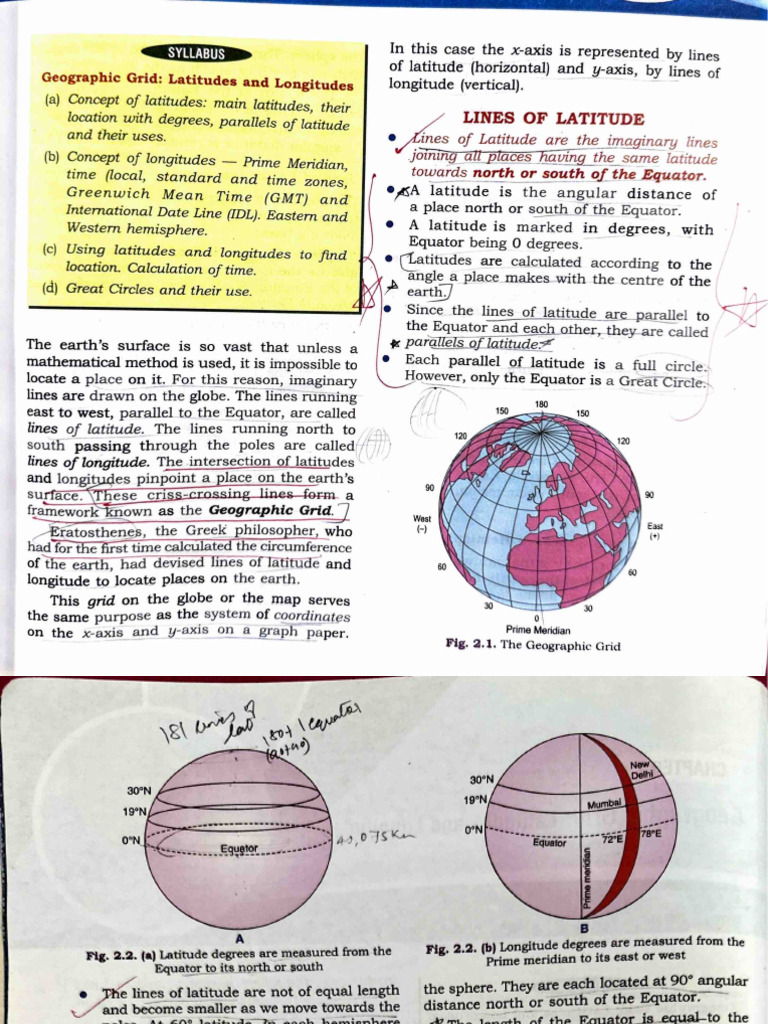 SYLLABUS
Geographic Grid: Latitudes and Longitudes
(a) Concept of latitudes: main latitudes, their
location with degrees, parallels of latitude
and their uses.
(b) Concept of longitudes — Prime Meridian,
time (local, standard and time zones,
Greenwich Mean Time (GMT) and
International Date Line (IDL). Eastern and
Western hemisphere.
(c) Using latitudes and longitudes to find
location. Calculation of time.
(d) Great Circles and their use.
The earth's surface is so vast that unless a
mathematical method is used, it is impossible to
locate a place on it. For this reason, imaginary
lines are drawn on the globe. The lines running
east to west, parallel to the Equator, are called
lines of latitude. The lines running north to
south passing through the poles are called
lines of longitude. The intersection of latitudes
and longitudes pinpoint a place on the earth's
surface. These criss-crossing lines form a
framework known as the Geographic Grid.
Eratosthenes, the Greek philosopher, who
had for the first time calculated the circumference
of the earth, had devised lines of latitude and
longitude to locate places on the earth.
This grid on the globe or the map serves
the same purpose as the system of coordinates
on the x-axis and y-axis on a graph paper.
In this case the x-axis is represented by lines
of latitude (horizontal) and y-axis, by lines of
longitude (vertical).
LINES OF LATITUDE
• Lines of Latitude are the imaginary lines
joining all places having the same latitude
towards north or south of the Equator.
• A latitude is the angular distance of
a place north or south of the Equator.
• A latitude is marked in degrees, with
Equator being 0 degrees.
• Latitudes are calculated according to the
angle a place makes with the centre of the
earth.
• Since the lines of latitude are parallel to
the Equator and each other, they are called
parallels of latitude.
• Each parallel of latitude is a full circle.
However, only the Equator is a Great Circle.
180
150 150
120 120
90 90
West East
(–) (+)
60 60
30 30
0
Prime Meridian
Fig. 2.1. The Geographic Grid
181 lines of
lat
180+1 equator
(90+90)
30°N
19°N
0°N
Equator
40,075 Km
A
Fig. 2.2. (a) Latitude degrees are measured from the
Equator to its north or south
• The lines of latitude are not of equal length
and become smaller as we move towards the
poles. At 60° latitude, in each hemisphere
New
Delhi
30°N
19°N
Mumbai
0°N
Equator
72°E 78°E
Prime meridian
B
Fig. 2.2. (b) Longitude degrees are measured from the
Prime meridian to its east or west
the sphere. They are each located at 90° angular
distance north or south of the Equator.
The length of the Equator is equal to the